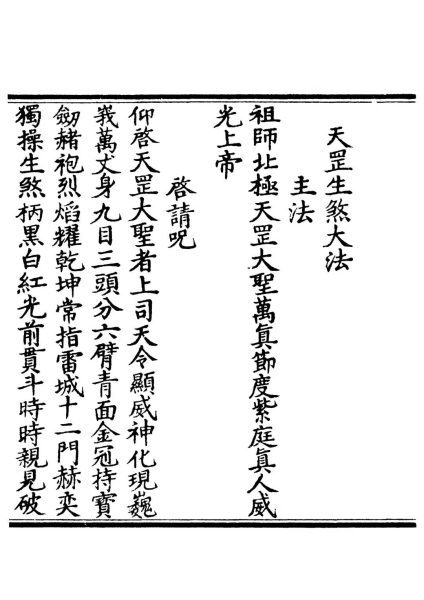 天罡生煞大法
主法
祖師北極天罡大聖萬眞節度紫庭眞人威
光上帝
啓請呪
仰啓天罡大聖者上司天令顯威神化現巍
峩萬丈身九目三頭分六臂青面金冠持寳
劒赭袍烈熖耀乾坤常指雷城十二門赫奕
獨操生煞柄黒白紅光前貫斗時時親見破